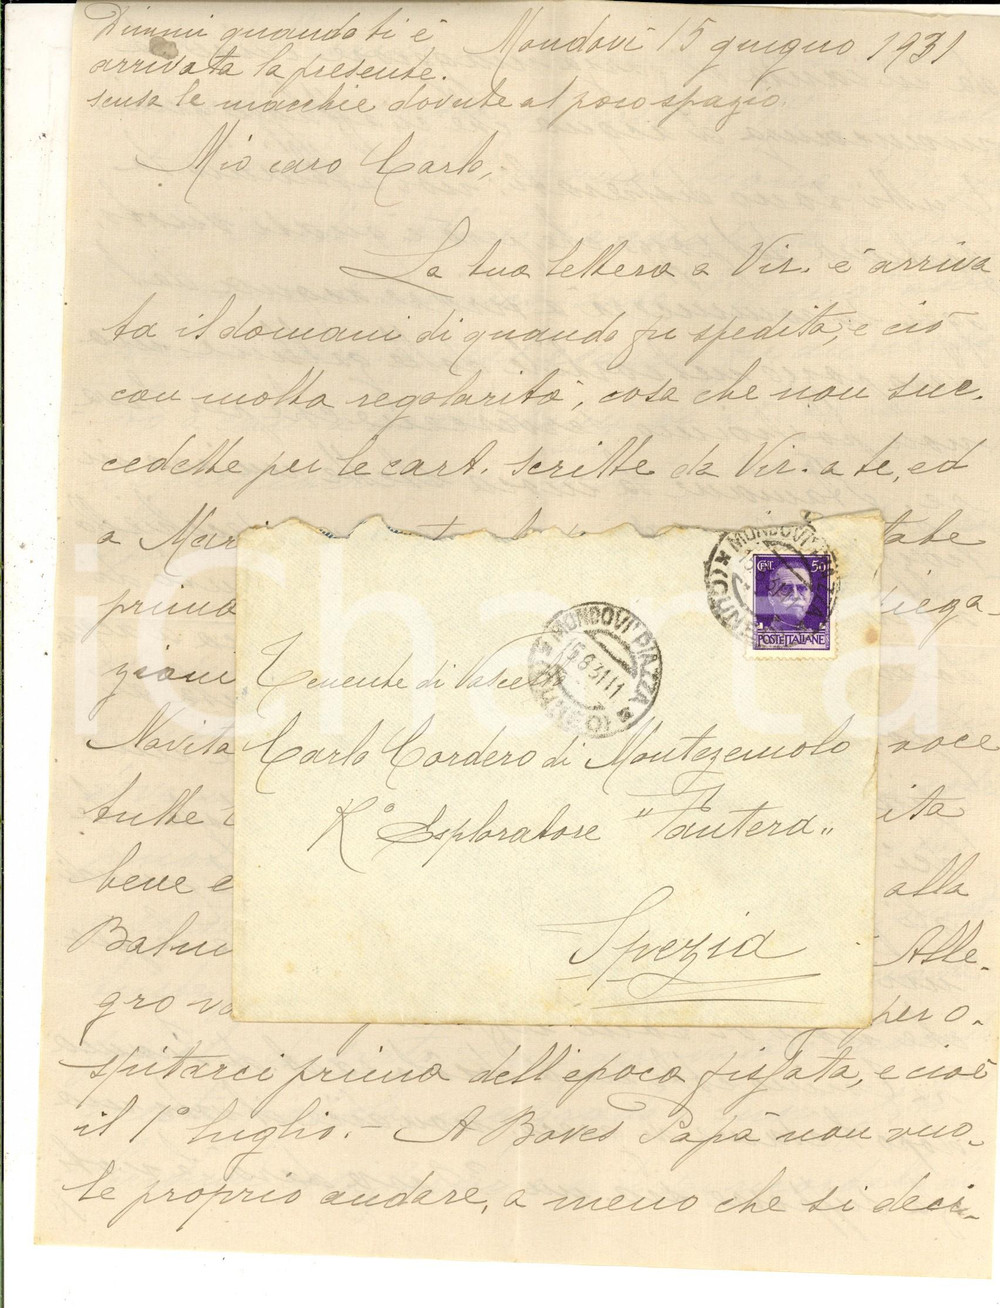 Dimmi quando ti è
arrivata la presente.
scusa le macchie dovute al poco spazio.
Mondovì 15 giugno 1931
Mio caro Carlo,
La tua lettera a Vir. è arriva
ta il domani di quando fu spedita, e ciò
con molta regolarità, cosa che non suc-
cedette per le cart. scritte da Vir. a te, ed
a Mar
prima
iega-
zioni
Novità
voce
tutte
ita
bene e
alla
Balm
Alle-
gro
per o-
spitarci prima dell'epoca fissata, e cioè
il 1° luglio. - A Boves Papà non vuo-
le proprio andare, a meno che si deci-
MONDOVI' PIAZZA
(CUNEO)
15.6.31.11
MONDOVI' PIAZZA
(CUNEO)
CENT. 50
POSTE ITALIANE
Tenente di Vascello
Carlo Cordero di Montezemolo
R° Esploratore "Pantera"
Spezia
icharta